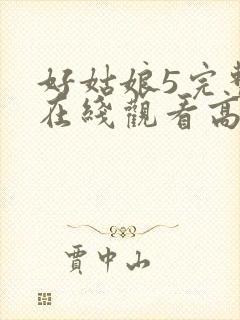 好姑娘5完整
在綫觀看高
賈中山